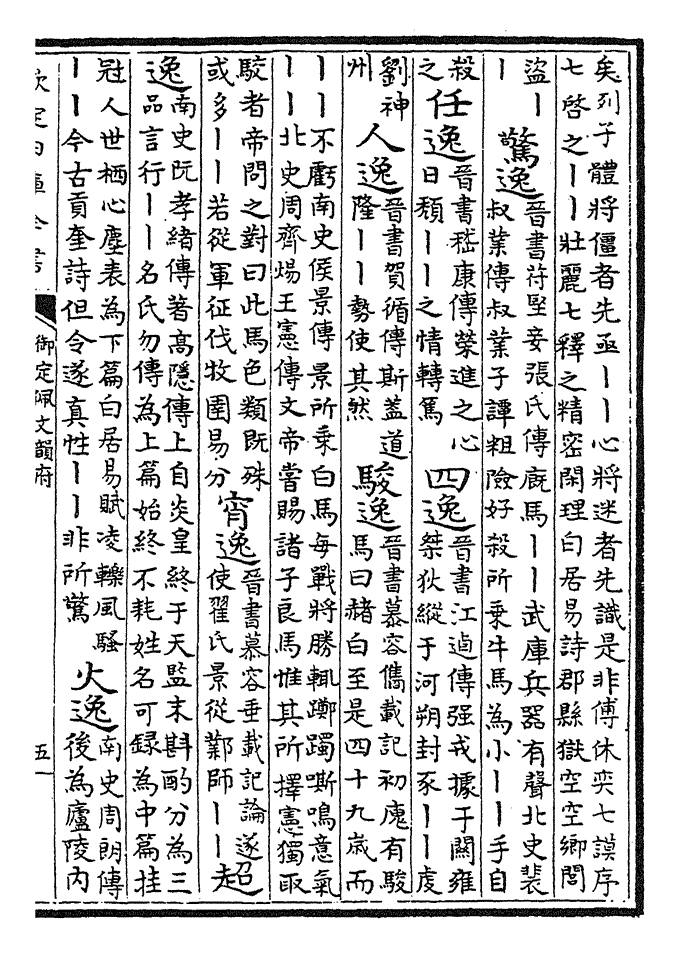 矣列子體將僵者先亟丨丨心將迷者先識是非傅休奕七謨序
七啓之丨丨壯麗七釋之精密閑理白居易詩郡縣獄空空鄉閭
盜丨
丨
驚逸
晉書苻堅妾張氏傳廐馬丨丨武庫兵器有聲北史裴
叔業傳叔業子譚粗險好殺所乗牛馬為小丨丨手自
殺
之
任逸
晉書嵇康傳榮進之心
日頹丨丨之情轉篤
四逸
晉書江逌傳强戎據于關雍
桀狄縱于河朔封豕丨丨虔
劉神
州
人逸
晉書賀循傳斯蓋道
隆丨丨勢使其然
駿逸
晉書慕容儁載記初廆有駿
馬曰赭白至是四十九歳而
丨丨不虧南史侯景傳景所乗白馬每戰將勝輒躑躅嘶鳴意氣
丨丨北史周齊煬王憲傳文帝嘗賜諸子良馬惟其所擇憲獨取
駮者帝問之對曰此馬色類既殊
或多丨丨若從軍征伐牧圉易分
宵逸
晉書慕容垂載記論遂
使翟氏景從鄴師丨丨
超
逸
南史阮孝緒傳著髙隱傳上自炎皇終于天監末斟酌分為三
品言行丨丨名氏勿傳為上篇始終不耗姓名可録為中篇挂
冠人世栖心塵表為下篇白居易賦凌轢風騷
丨丨今古貢奎詩但令遂真性丨丨非所驚
火逸
南史周朗傳
後為廬陵内
欽定四庫全書
御定佩文韻府